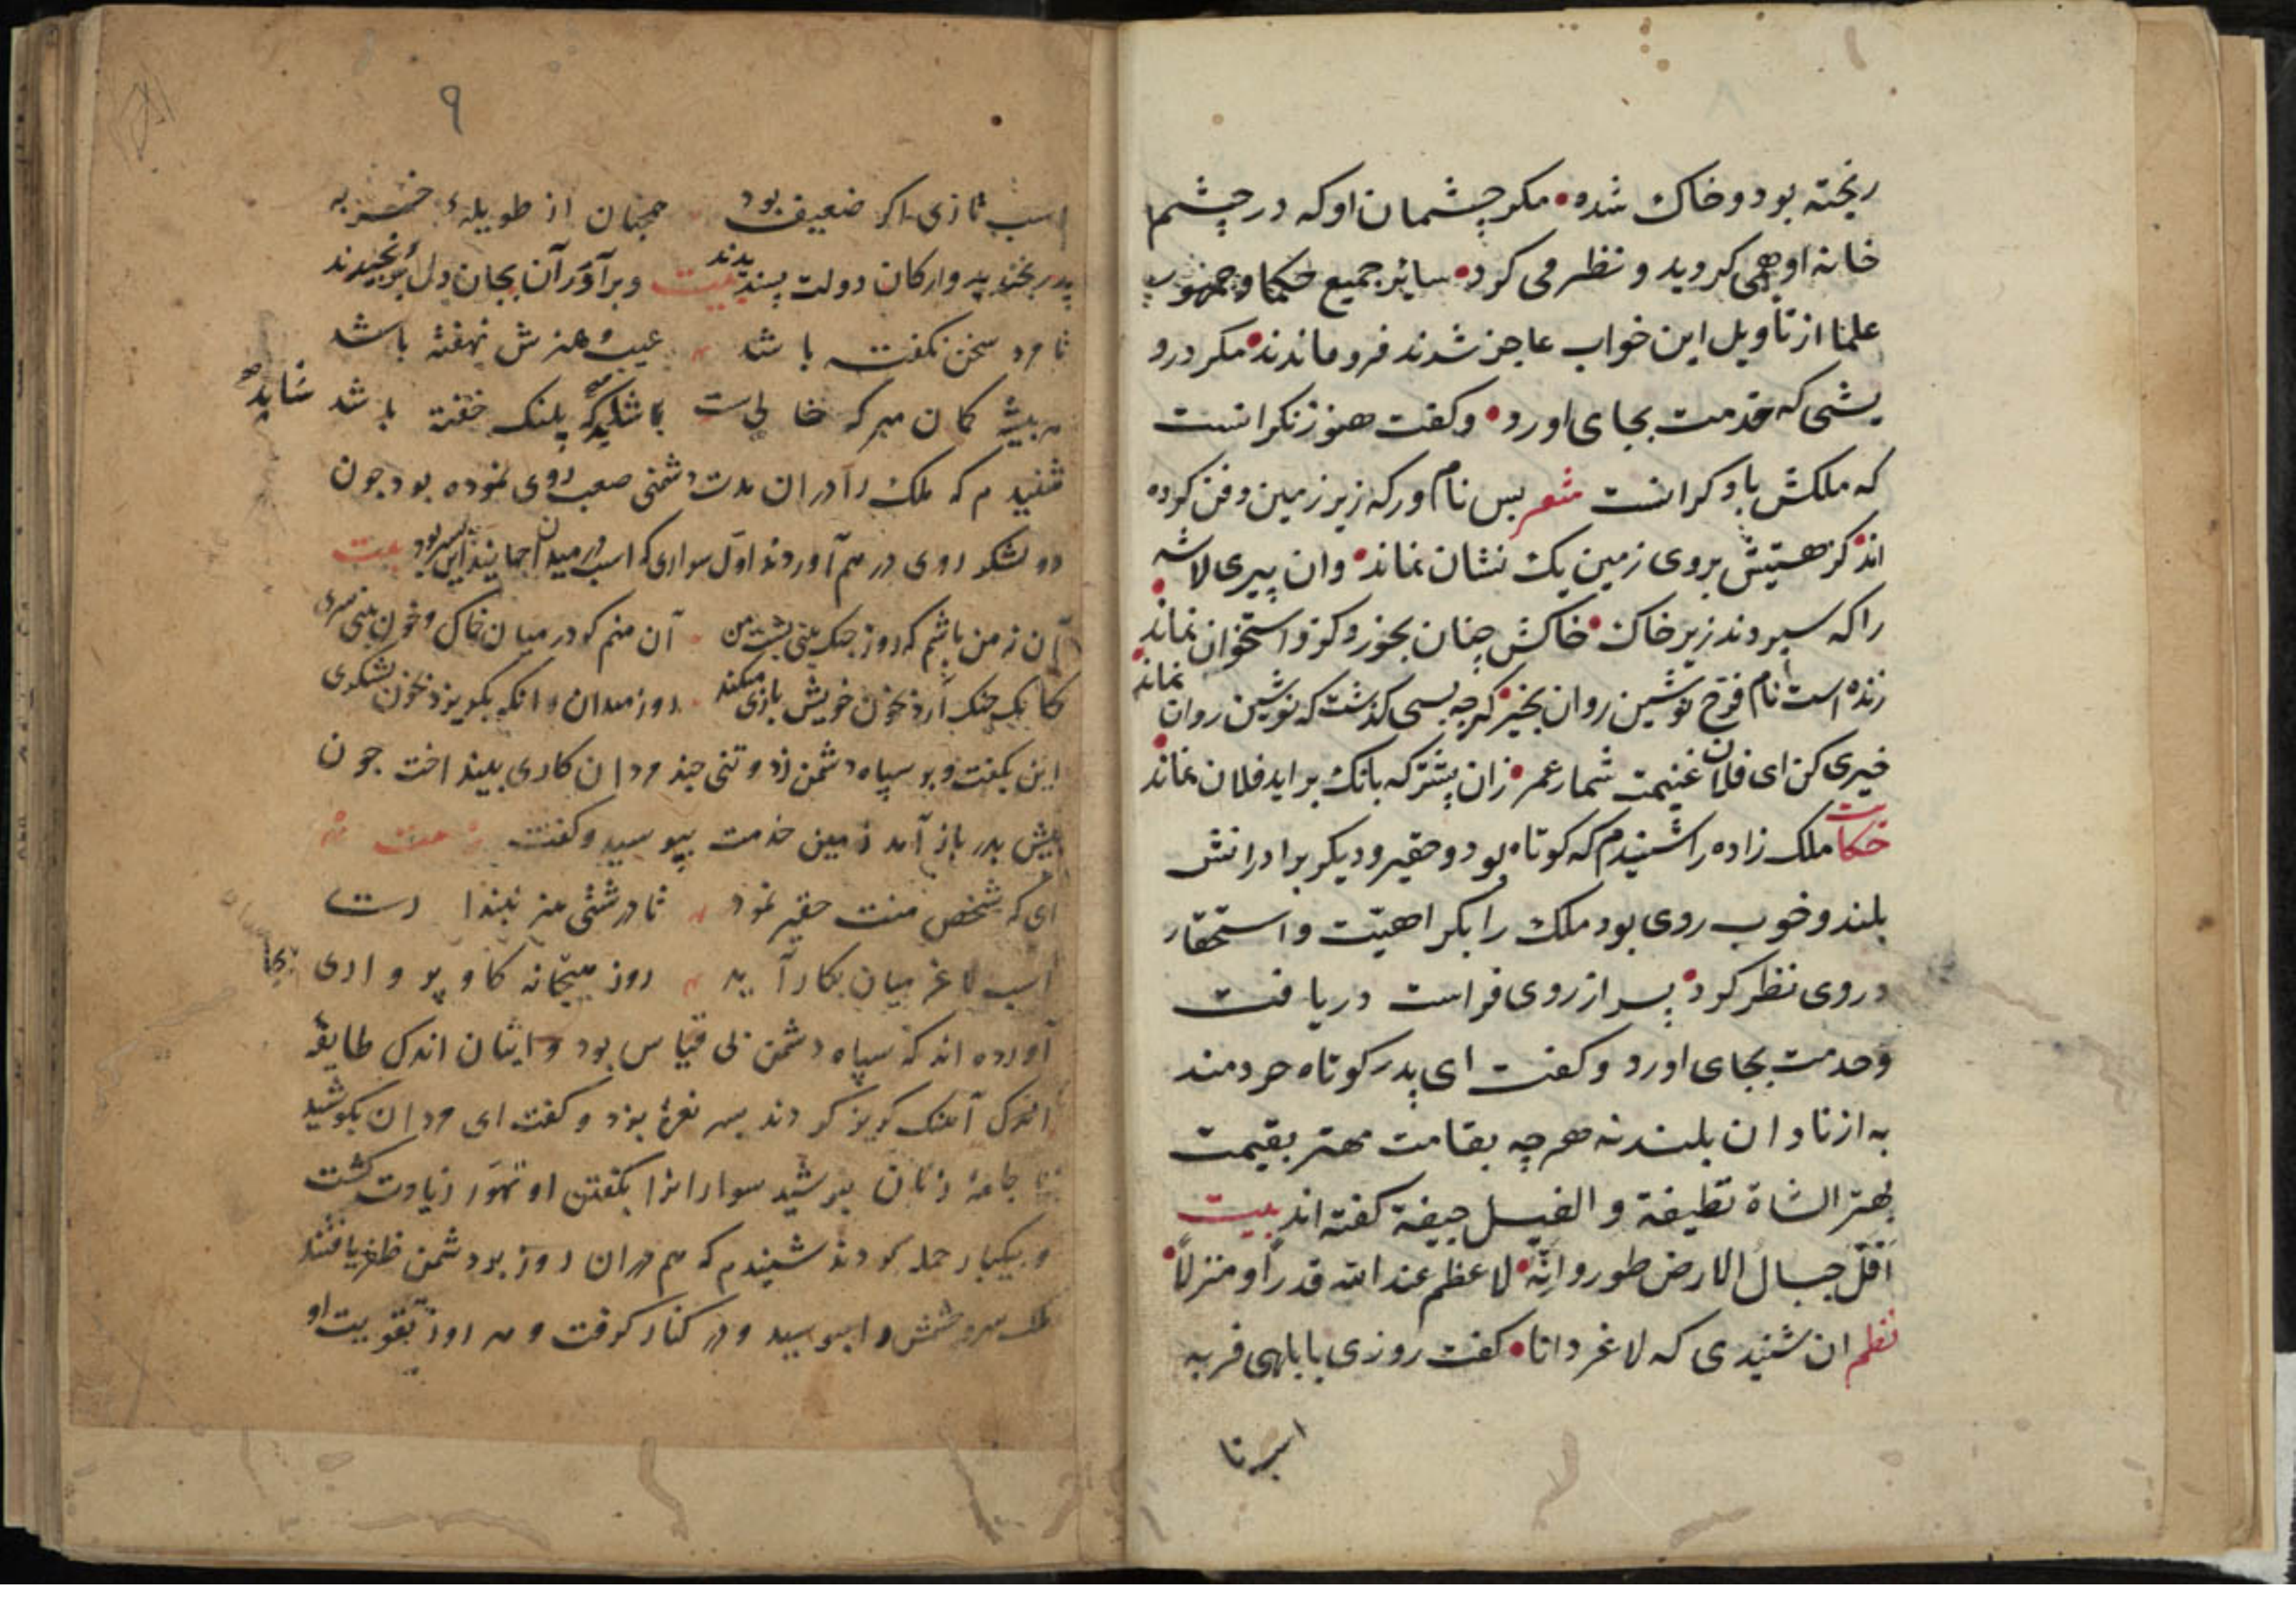 ریخته بود و خاک شده مکر چشمان او که در چشم
خانه او همی کردید و نظر می کرد سائر جمیع حکما و جمهور
علما از تأویل این خواب عاجز شدند فرو ماندند مکر درو
یشی که خدمت بجای اورد وکفت هنوز نکرانست
که ملکش با دکرانست شعر بس نامور که زیر زمین دفن کرده
اند کز هستیش بروی زمین یک نشان نماند وان پیر لاشه
را که سپردند زیر خاک خاکش چنان بخورد کزو استخوان نماند
زنده است نام فرخ نوشین روان بخیر کرچه بسی کذشت که نوشین روان نماند
خیری کن ای فلان غنیمت شمار عمر زان پیشتر که بانک براید فلان نماند
حکایت ملک زاده را شنیدم که کوتاه بود و حقیر و دیکر برادرانش
بلند و خوب روی بود ملک را بکراهیت و استحقار
در وی نظر کرد پسر از روی فراست دریافت
وخدمت بجای اورد وکفت ای پدر کوتاه خردمند
به از نادان بلند نه هرچه بقامت مهتر بقیمت
بهتر الشاة نظیفة و الفیل جیفة کفته اند بیت
اَقلّ جبال الارض طور وانّه لاعظم عند الله قدراً و منزلاً
نظم ان شنیدی که لاغر دانا کفت روزی بابلهی فربه
اسب تا
۹
اسب تازی اکر ضعیف بود همچنان از طویلهٔ خر به
پدر بخندید و ارکان دولت پسندیدند وبرآدران بجان دل برنجیدند بیت
تا مرد سخن نکفته باشد عیب و هنرش نهفته باشد
هر بیشه کمان مبر که خالی است باشد که پلنک خفته باشد شاید
شنیدم که ملک را دران مدت دشمنی صعب روی نموده بود چون
دو لشکر روی در هم آوردند اول سواری که اسب در میدان جهانید این پسر بود بیت
آن نه من باشم که روز جنک بینی پشت من آن منم کو در میان خاک و خون بینی سری
کانک جنک آرد بخون خویش بازی میکند روز میدان وانکه بکریزد بخون لشکری
این بکفت و بر سپاه دشمن زد و تنی چند مردان کاری بینداخت چون
پیش پدر باز آمد زمین خدمت ببوسید وکفت بیت
ای که شخص منت حقیر نمود تا درشتی هنر نپنداری
اسب لاغر میان بکار آید روز میدان نه کاو پرواری
آورده اند که سپاه دشمن بی قیاس بود و ایشان اندک طایفهٔ
اندک آهنک کریز کردند پسر نعرهٔ بزد و کفت ای مردان بکوشید
تا جامهٔ زنان نپوشید سوارانرا بکفتن او تهوّر زیادت کشت
و بیکبار حمله کردند شنیدم که هم دران روز بر دشمن ظفر یافتند
ملک سر و چشمش را ببوسید و در کنار کرفت و هر روز تقویت او